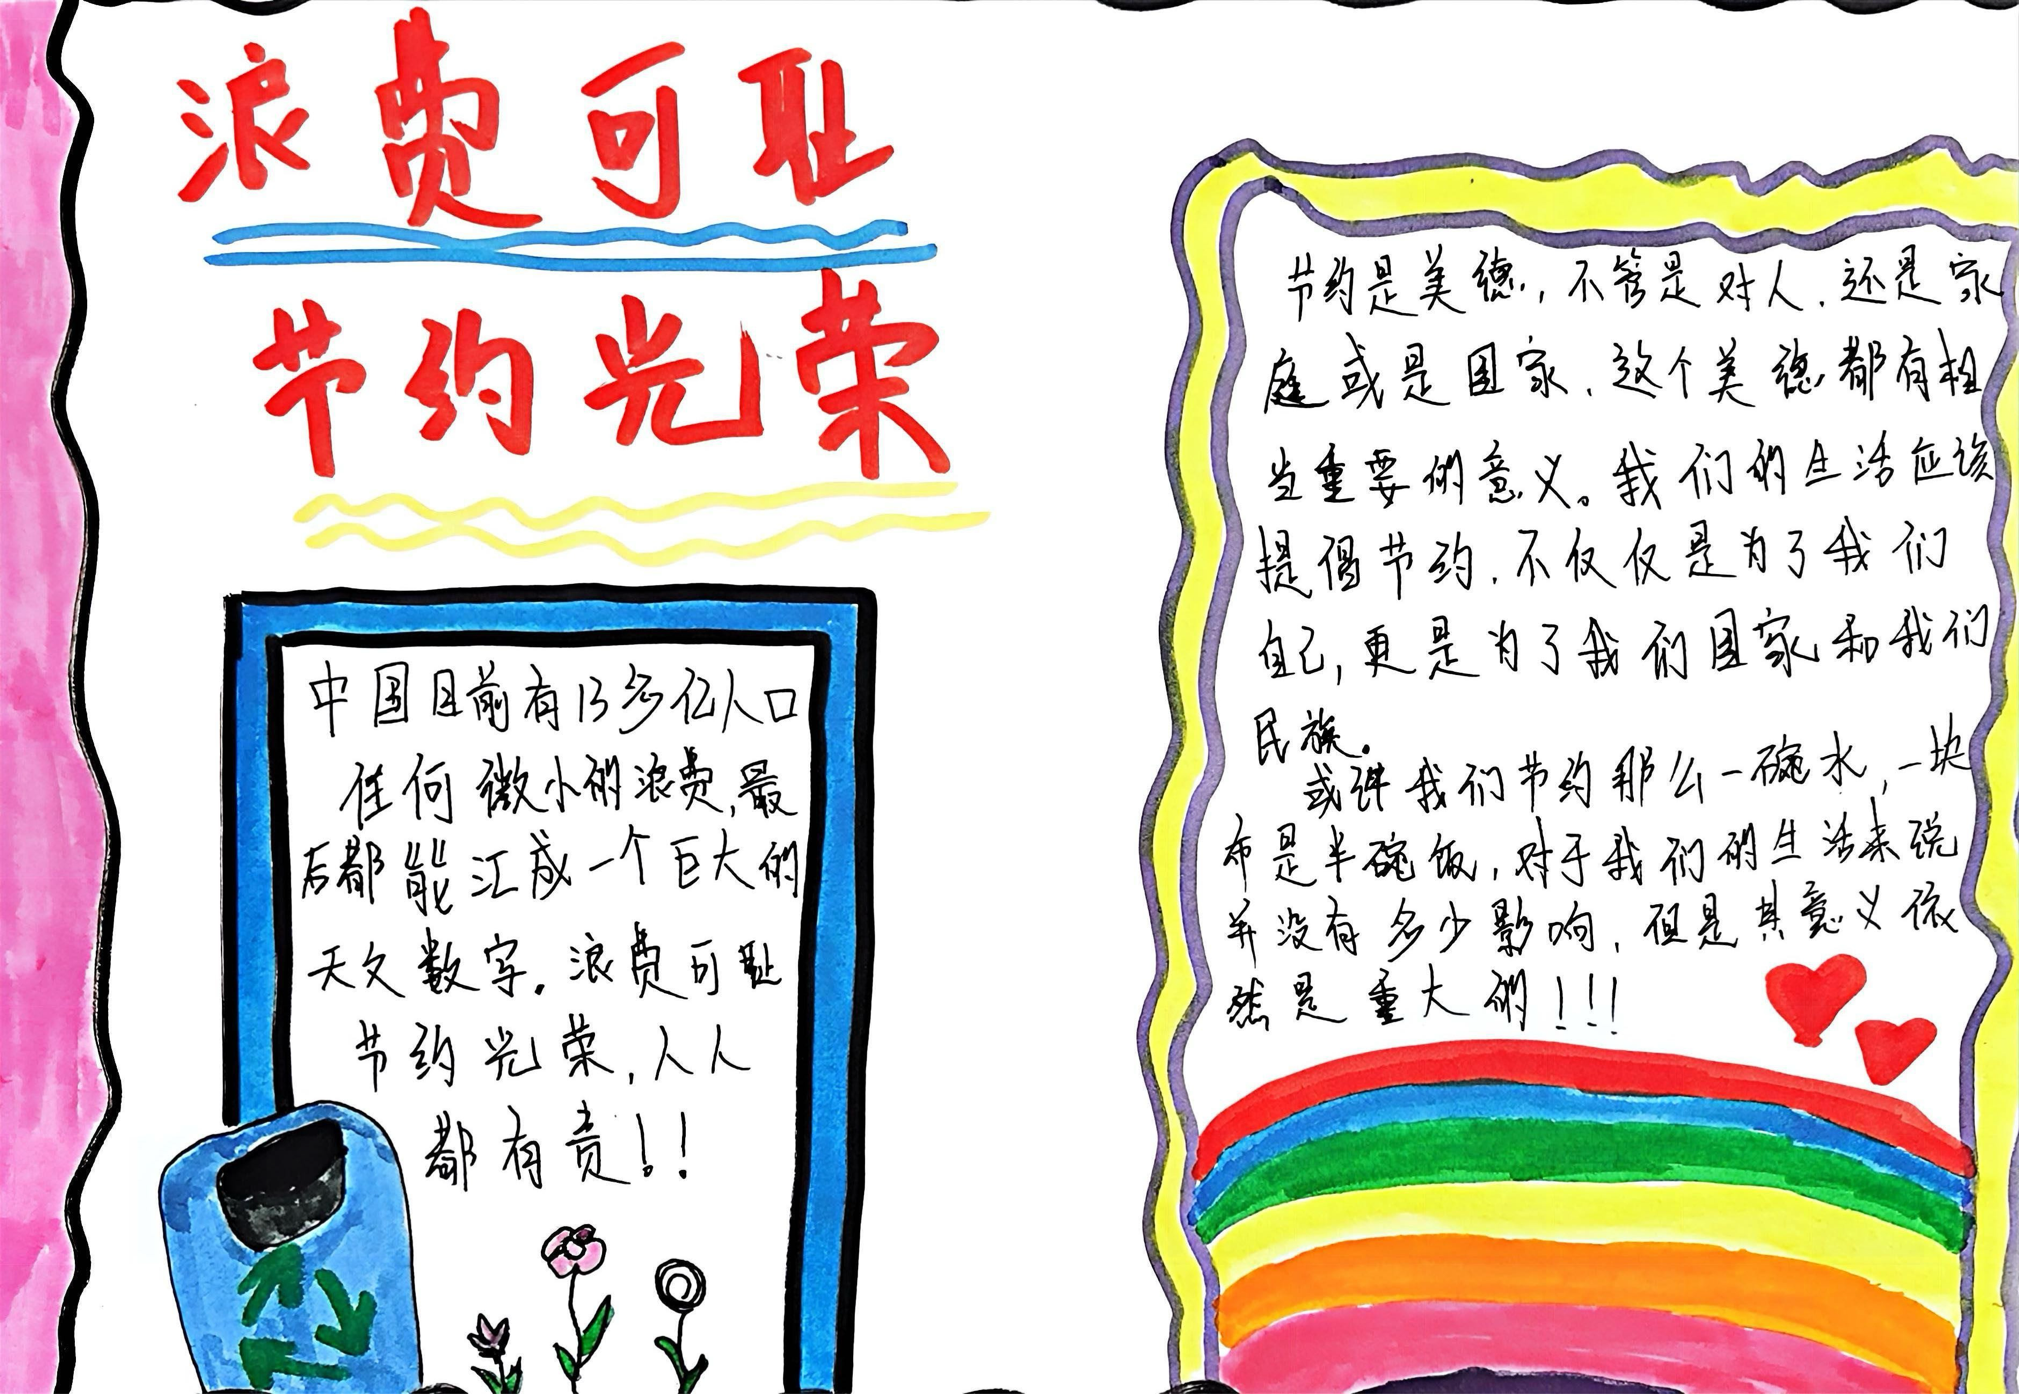 浪费可耻
节约光荣
中国目前有13多亿人口
任何微小的浪费,最
后都能汇成一个巨大的
天文数字.浪费可耻
节约光荣,人人
都有责!!
节约是美德,不管是对人,还是家
庭或是国家,这个美德都有相
当重要的意义。我们的生活应该
提倡节约,不仅仅是为了我们
自己,更是为了我们国家和我们
民族。
或许我们节约那么一碗水,一块
布是半碗饭,对于我们的生活来说
并没有多少影响,但是其意义依
然是重大的!!!